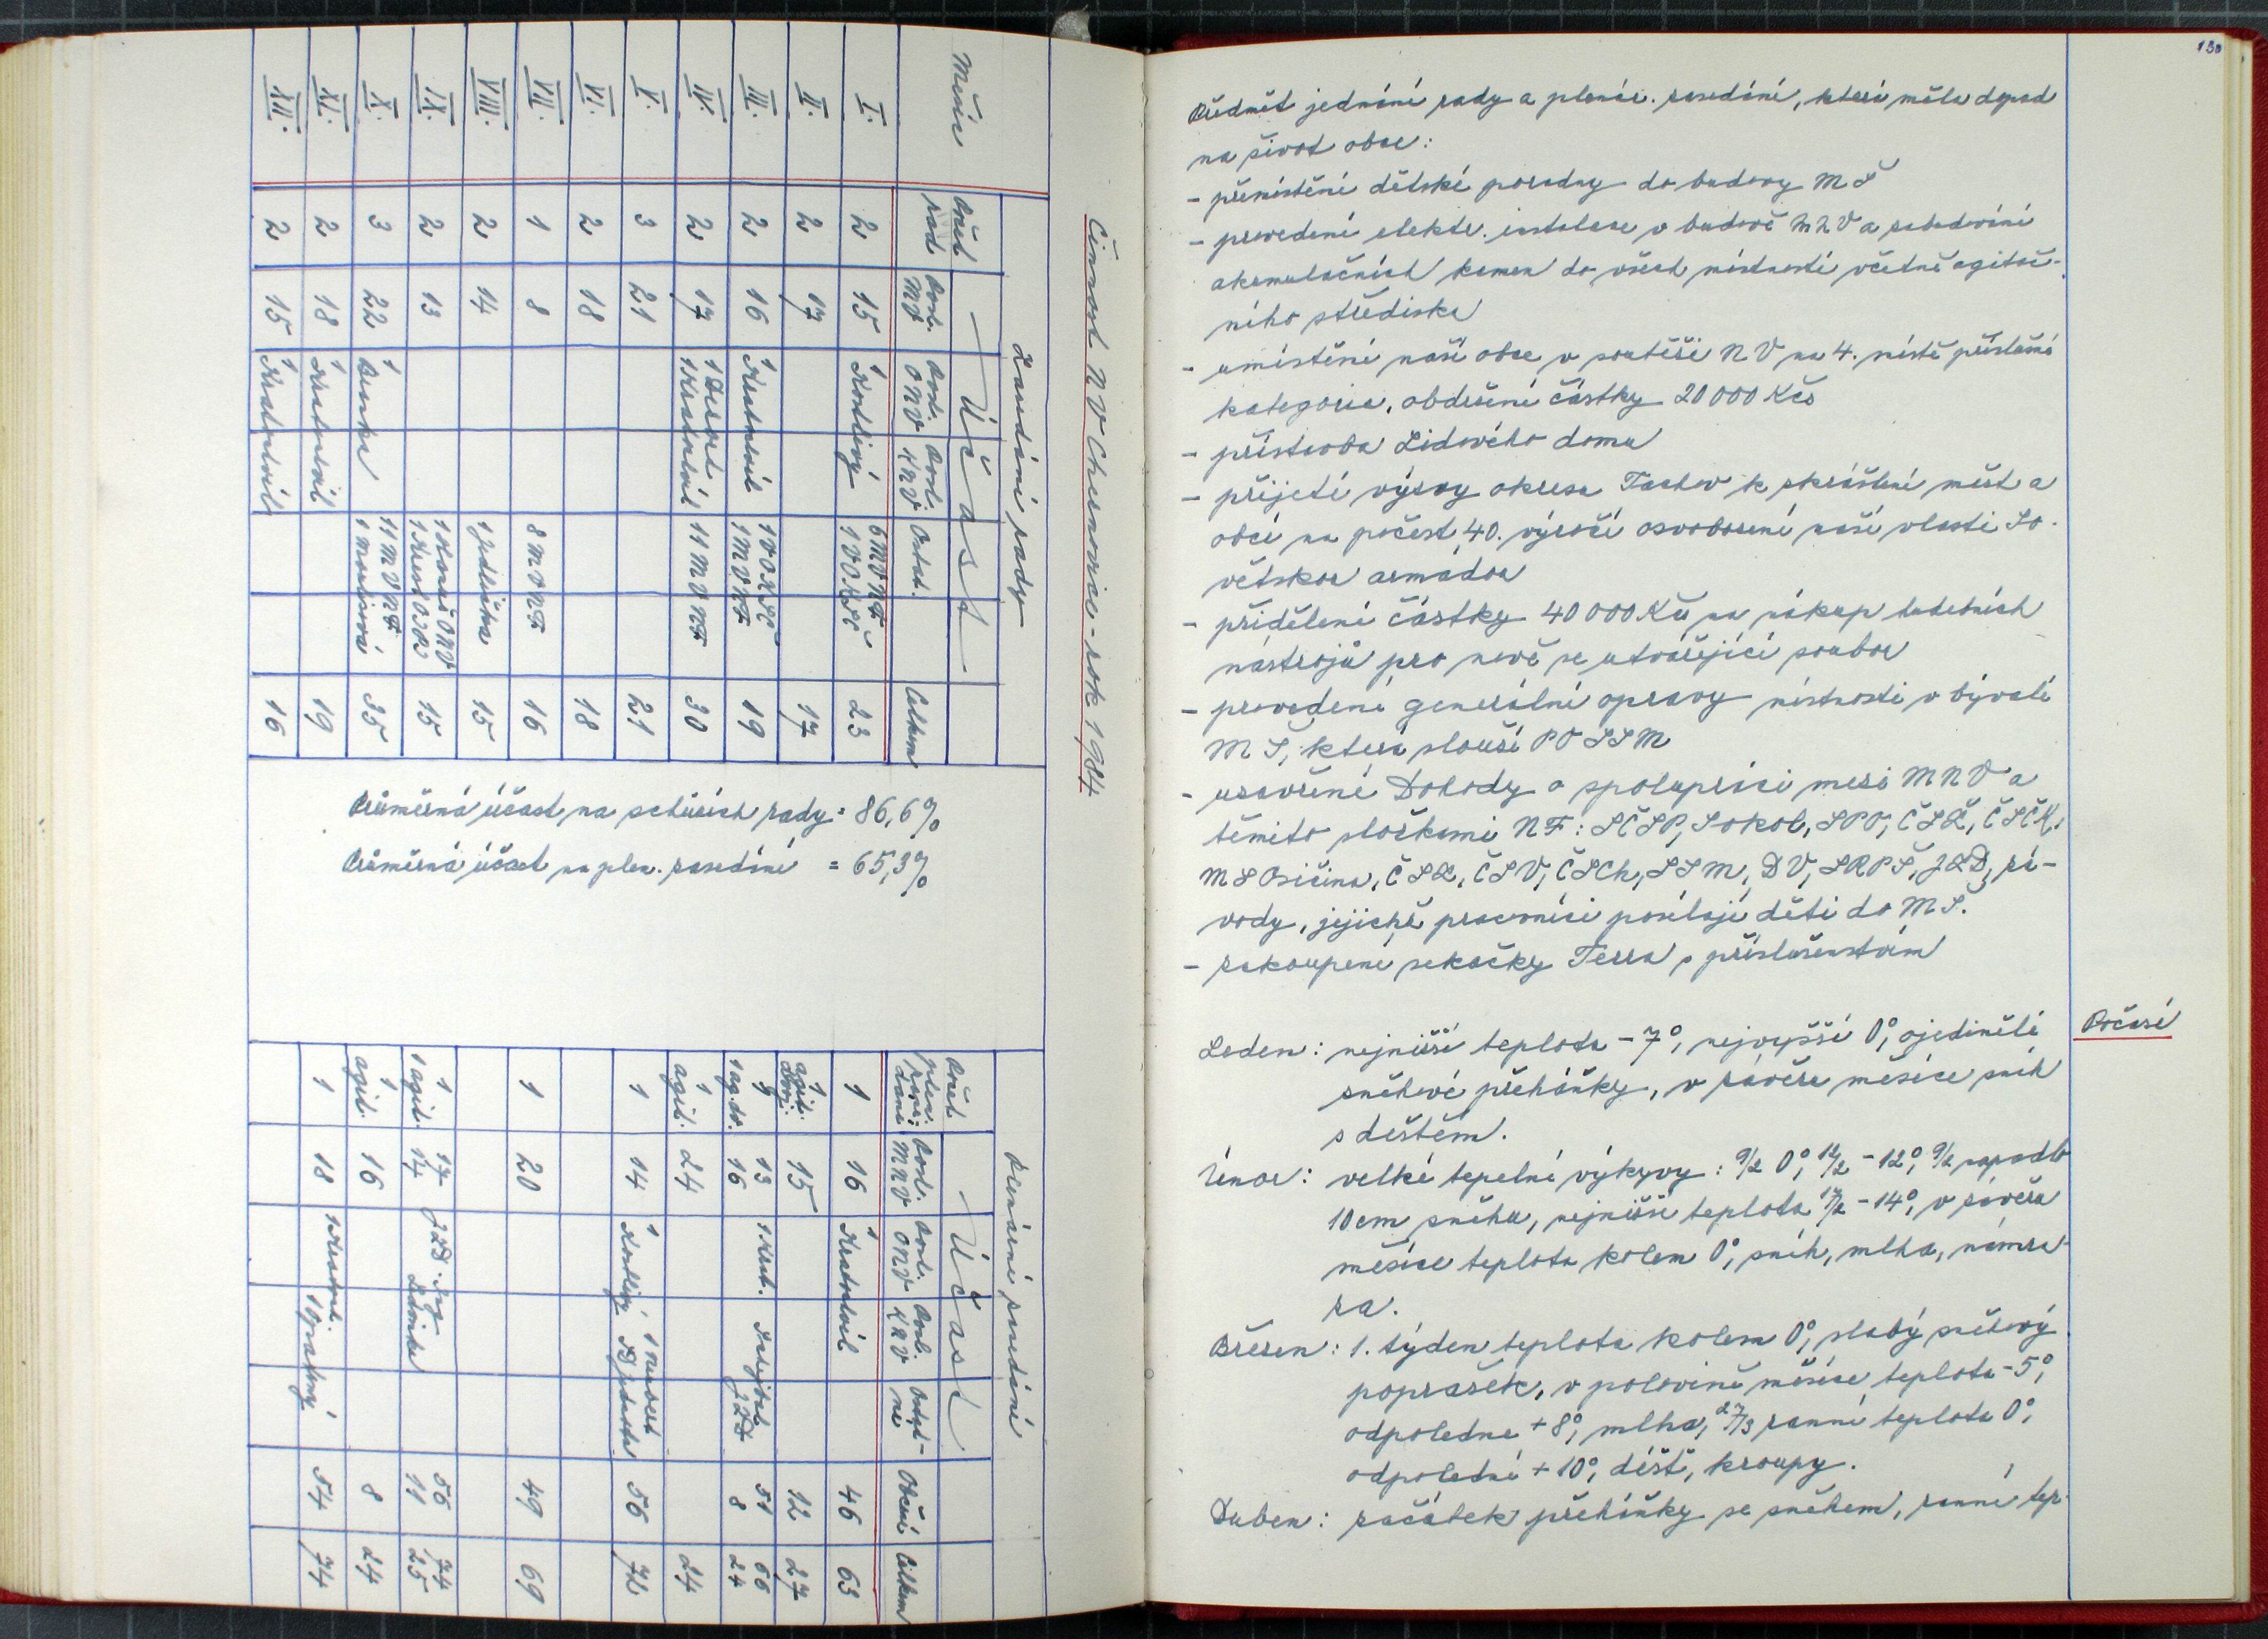 Činnost NV Chernovice - rok 1984
Měsíc
Zasedání rady
Počet rad
Účast
Posl. MV
Posl. ONV
Posl. KNV
Ostat.
Celkem
I. 2 15 1 Kostlivý 6 MV NF 1 VO KSČ 23
II. 2 17 17
III. 2 16 1 Kratochvíl 1 VO KSČ 1 MV NF 19
IV. 2 17 1 Kratochvíl 11 MV NF 30
V. 3 21 21
VI. 2 18 18
VII. 1 8 8 MV NF 16
VIII. 2 14 1 Jedlička 15
IX. 2 13 15
X. 3 22 1 11 MV NF 1 35
XI. 2 18 1 Kratochvíl 19
XII. 2 15 1 Kratochvíl 16
Průměrná účast na schůzích rady = 86,6%
Průměrná účast na plen. zasedání = 65,3%
Plenární zasedání
Počet plen. zasedání
Účast
Posl. MNV
Posl. ONV
Posl. KNV
Občané
Celkem
1 16 1 Kratochvíl 46 63
1 agit. 15 12 27
1 13 1 Krat. JZD 51 66
1 ag. 16 8 24
1 agit. 24 24
1 14 1 Kostlivý 56 72
1 20 49 69
1 17 JZD 56 74
1 agit. 14 11 25
1 agit. 16 8 24
1 18 1 Kratoch. 1 54 74
130
Předmět jednání rady a plenár. zasedání, která měla dopad
na život obce:
- přemístění dětské poradny do budovy MŠ
- provedení elektr. instalace v budově MNV a zabudování
akumulačních kamen do všech místností včetně agitač-
ního střediska
- umístění naší obce v soutěži NV na 4. místě příslušné
kategorie, obdržení částky 20 000 Kčs
- přístavba Lidového domu
- přijetí výzvy okresu Tachov k zkrášlení měst a
obcí na počest 40. výročí osvobození naší vlasti So-
větskou armádou
- přidělení částky 40 000 Kčs na nákup hudebních
nástrojů pro nově se utvářející soubor
- provedení generální opravy místnosti v bývalé
MŠ, která slouží PO SSM
- uzavření Dohody o spolupráci mezi MNV a
těmito složkami NF: SČSP, Sokol, SPO, ČSŽ, ČSČK,
MS Osičina, ČSZ, ČSV, ČSCh, SSM, DV, SRPŠ, JZD, zá-
vody, jejichž pracovníci posílají děti do MŠ.
- zakoupení sekačky Terra s příslušenstvím
Počasí
Leden: nejnižší teplota -7°, nejvyšší 0°, ojedinělé
sněhové přeháňky, v závěru měsíce sníh
s deštěm.
Únor: velké tepelné výkyvy: 9/2 0°, 12/2 -12°, 9/2 napadlo
10 cm sněhu, nejnižší teplota 17/2 -14°, v závěru
měsíce teplota kolem 0°, sníh, mlha, námra-
za.
Březen: 1. týden teplota kolem 0°, slabý sněhový
poprašek, v polovině měsíce teplota -5°,
odpoledne +8°, mlha, 27/3 ranní teplota 0°,
odpolední +10°, déšť, kroupy.
Duben: začátek přeháňky se sněhem, ranní tep-